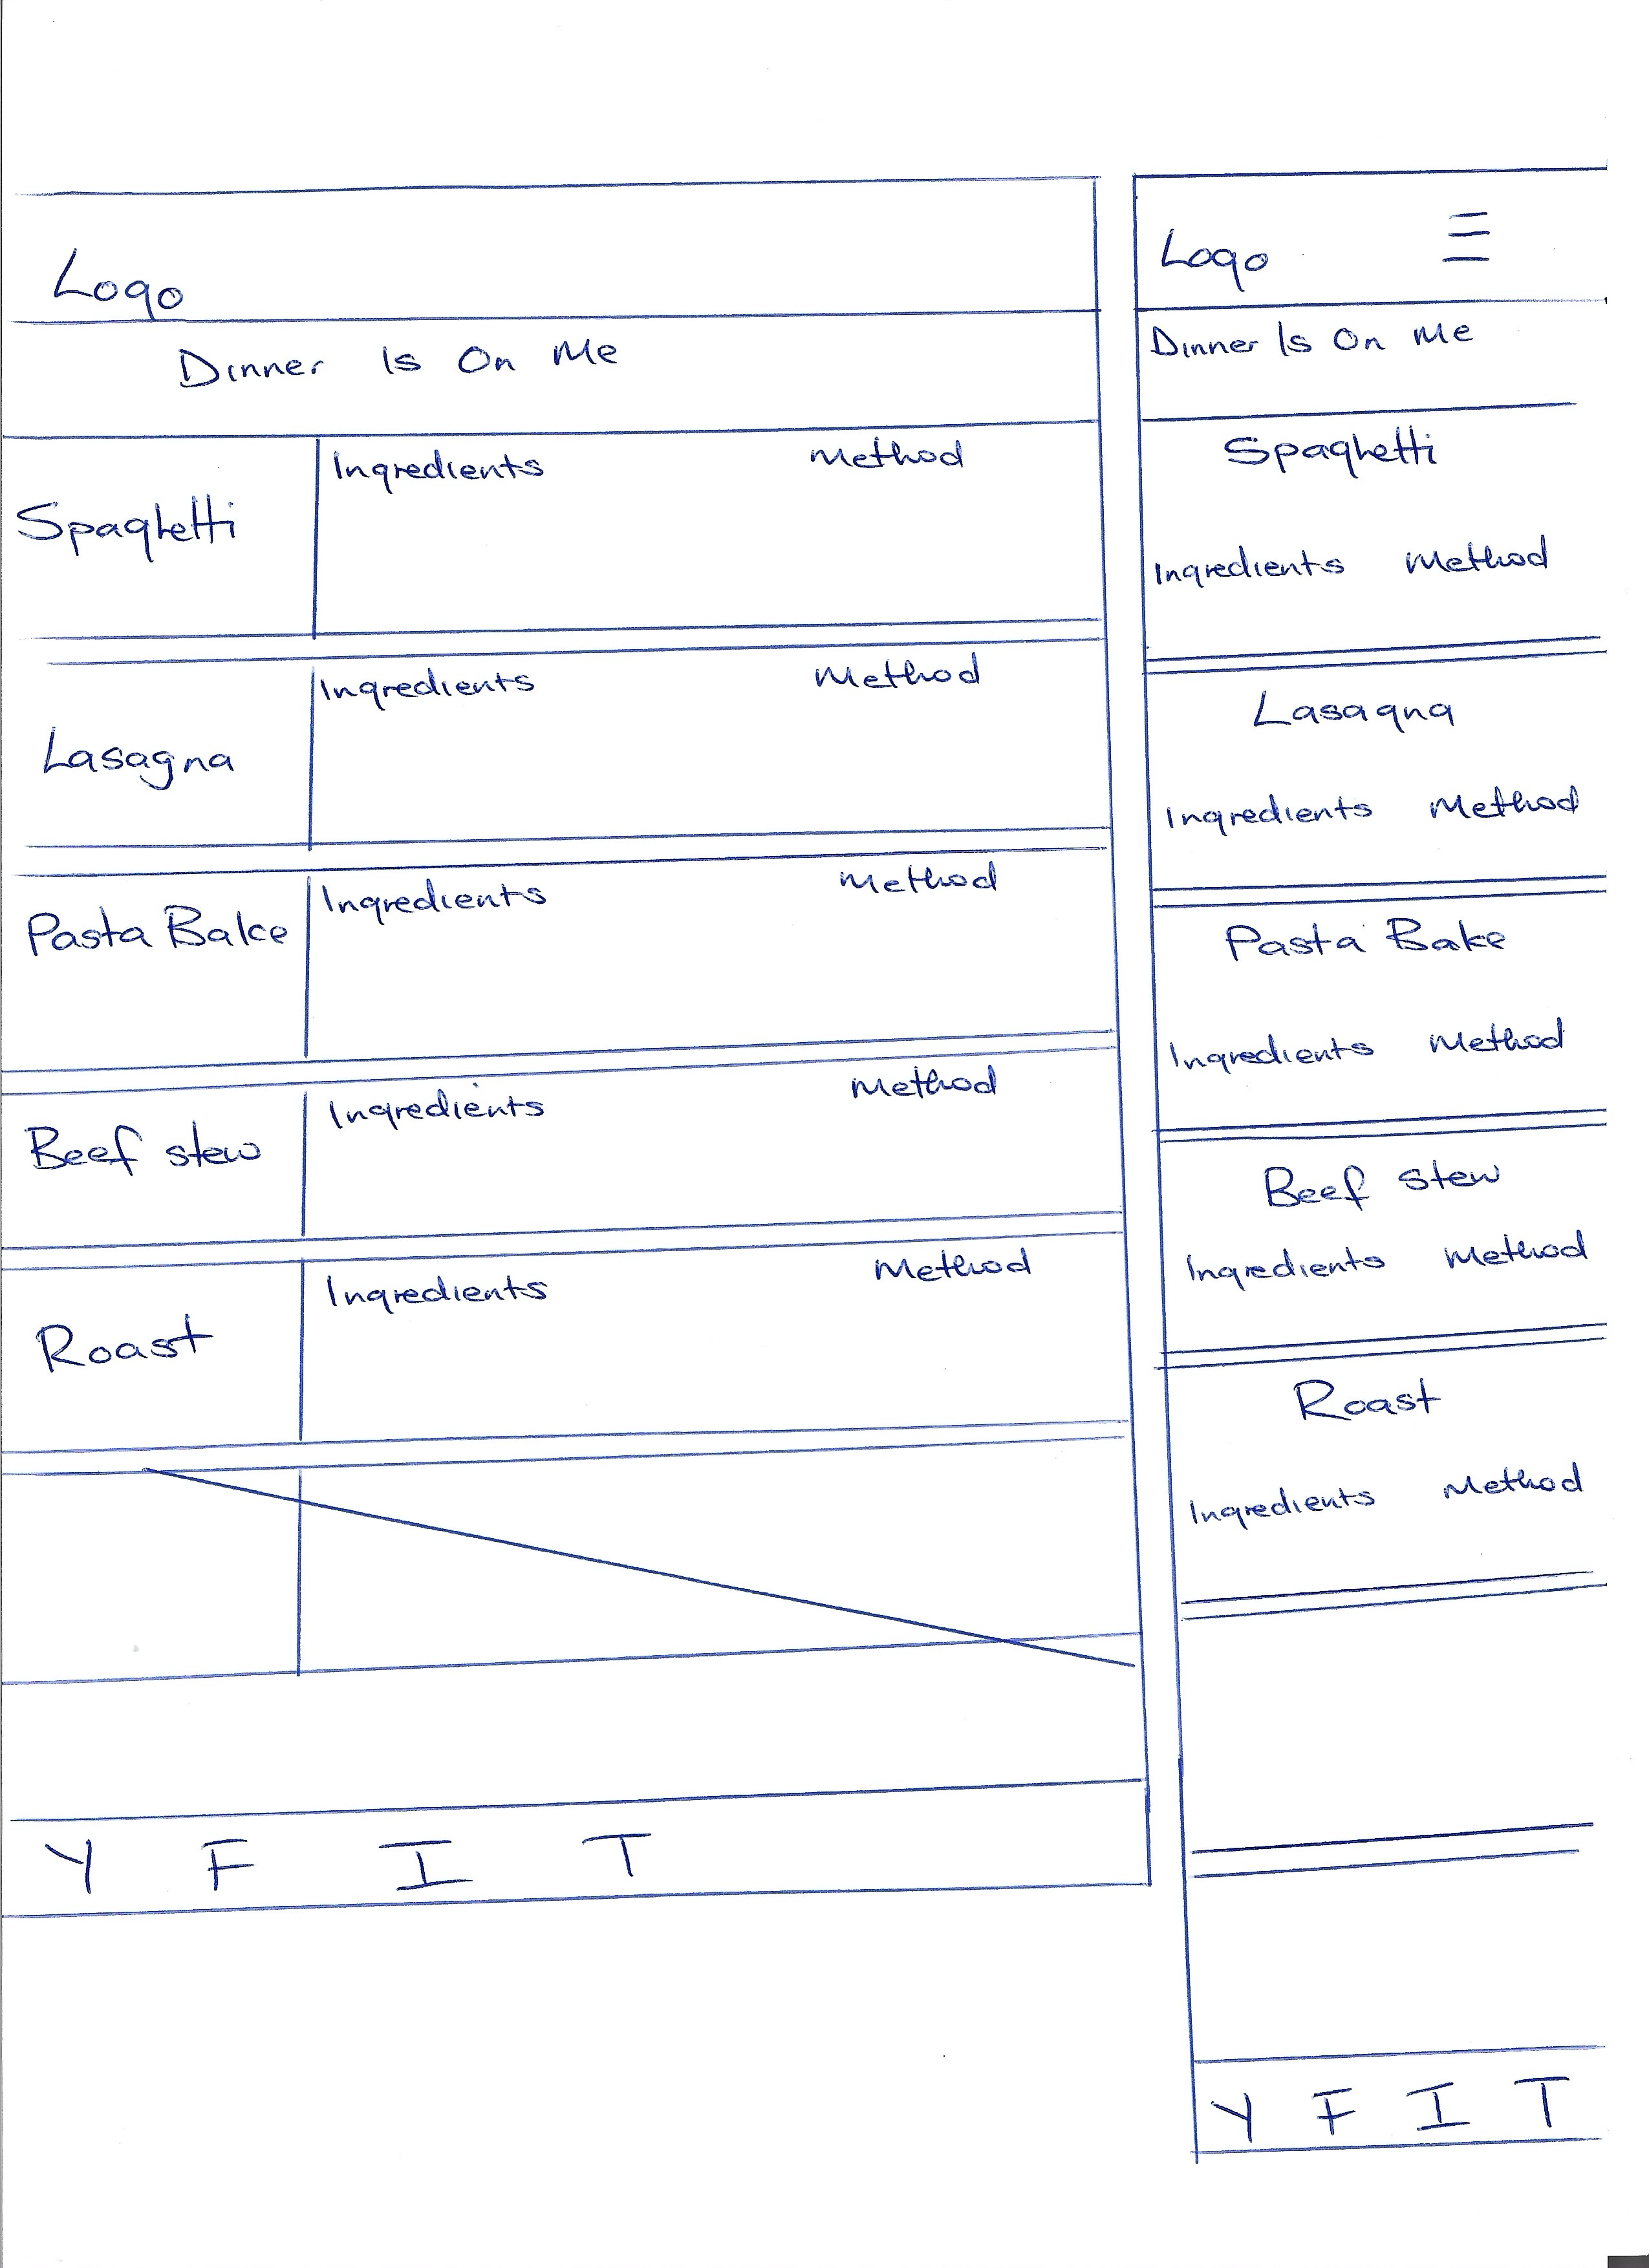 Logo
Dinner Is On Me
Spaghetti
Ingredients Method
Lasagna
Ingredients Method
Pasta Bake
Ingredients Method
Beef stew
Ingredients Method
Roast
Ingredients Method
Y F I T
Logo
Dinner Is On Me
Spaghetti
Ingredients Method
Lasagna
Ingredients Method
Pasta Bake
Ingredients Method
Beef stew
Ingredients Method
Roast
Ingredients Method
Y F I T